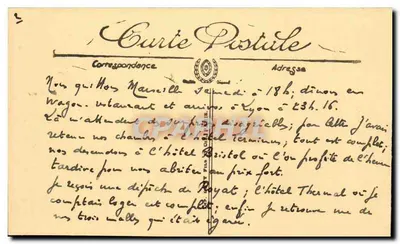 Carte Postale
Correspondance
Adresse
Nous quittons Marseille Samedi à 18h, dînons en
Wagon-restaurant et arrivons à Lyon à 23h.16.
Là m'attendent par lettre j'avais
retenu nos chambres hôtel Terminus; tout est complet;
nous descendons à l'hôtel Bristol où l'on profite de l'heure
tardive pour nous abriter au prix fort.
Je reçois une dépêche de Royat; l'hôtel Thermal où je
comptais loger est complet; enfin je retrouve une de
nos trois malles qui était égarée.